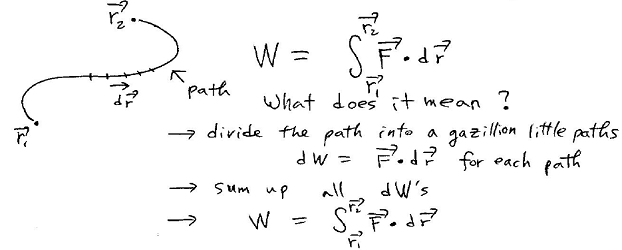 r⃗₂
W = ∫r⃗₁^r⃗₂ F⃗ · dr⃗
path
dr⃗
r⃗₁
What does it mean ?
→ divide the path into a gazillion little paths
dW = F⃗ · dr⃗ for each path
→ sum up all dW's
→ W = ∫r⃗₁^r⃗₂ F⃗ · dr⃗